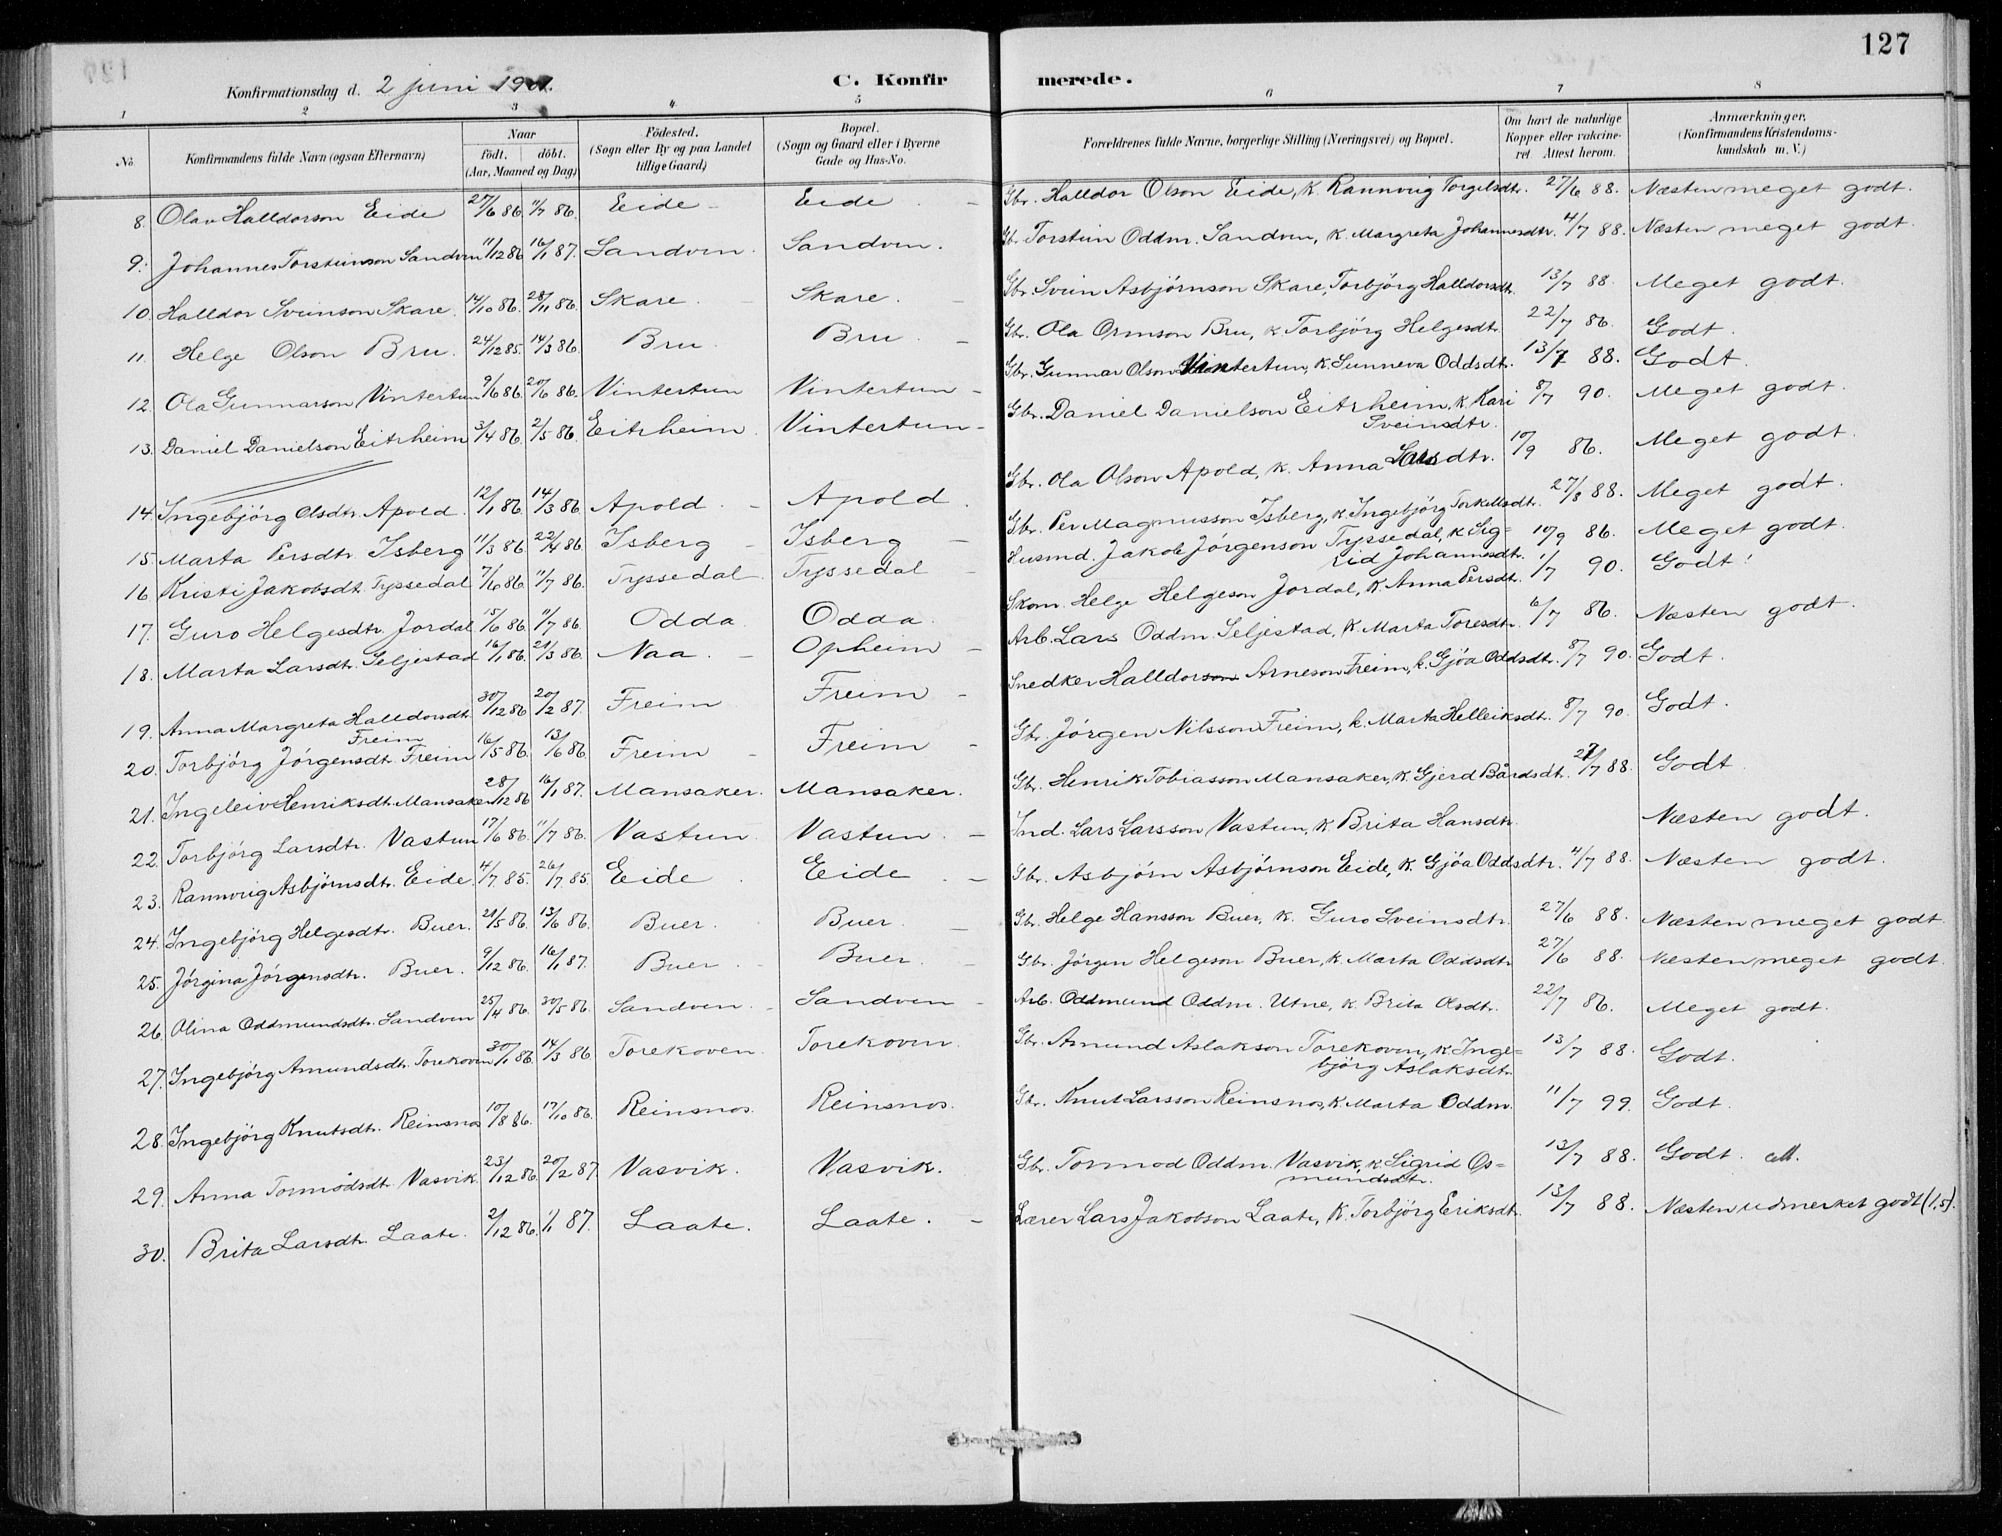 127
Konfirmationsdag d. 2 juni 1901.
C. Konfirmerede.
1 2 3 4 5 6 7 8
No. Konfirmandens fulde Navn (ogsaa Efternavn) Naar födt. döbt. (Aar, Maaned og Dag) Födested. (Sogn eller By og paa Landet tillige Gaard) Bopæl. (Sogn og Gaard eller i Byerne Gade og Hus-No. Forældrenes fulde Navne, borgerlige Stilling (Næringsvei) og Bopæl. Om havt de naturlige Kopper eller vakcineret Attest herom. Anmærkninger. (Konfirmandens Kristendomskundskab m. V.)
8. Olav Halldorson Eide 27/6 86. 11/7 86. Eide - Eide - Gbr. Halldor Olson Eide, k. Rannvig Torgilsdtr. 27/6 88. Næsten meget godt.
9. Johannes Torsteinson Sandven 11/12 86 16/1 87. Sandven. Sandven. Gbr. Torstein Oddm. Sandven, k. Margreta Johannesdtr. 4/7 88. Næsten meget godt.
10. Halldor Sveinson Skare. 14/10 86. 28/11 86. Skare. Skare. - Gbr. Svein Asbjörnson Skare, Torbjörg Halldorsdtr. 13/7 88. Meget godt.
11. Helge Olson Bru. 24/12 85. 14/3 86. Bru. Bru. - Gbr. Ola Ormson Bru, k. Torbjörg Helgesdtr. 22/7 86. Godt.
12. Ola Gunnarson Vintertun 9/6 86. 20/6 86. Vintertun Vintertun - Gbr. Gunnar Olson Vintertun, k. Sunneva Oddsdt. 13/7 88. Godt.
13. Daniel Danielson Eitrheim 3/4 86. 2/5 86. Eitrheim. Vintertun - Gbr. Daniel Danielson Eitrheim, k. Kari Sveinsdtr. 8/7 90. Meget godt.
14. Ingebjörg Olsdtr. Apold. 12/1 86. 14/3 86. Apold. - Apold. Gbr. Ola Olson Apold, k. Anna Larsdtr. 10/9 86. Meget godt.
15. Marta Persdtr. Isberg 11/3 86 22/4 86. Isberg - Isberg - Gbr. Per Magnusson Isberg, k. Ingebjörg Torkellsdtr. 27/8 88. Meget godt.
16. Kristi Jakobsdt. Tyssedal 7/6 86. 11/7 86. Tyssedal. Tyssedal - Husmd. Jakob Jörgenson Tyssedal, k. Sigrid Johannesdtr. 10/9 86. Meget godt.
17. Guro Helgesdtr. Jordal 15/6 86. 11/7 86. Odda. Odda. Skom. Helge Helgeson Jordal, k. Anna Persdt. 1/7 90. Godt!
18. Marta Larsdtr. Seljestad 16/1 86. 21/3 86. Naa. - Opheim - Arb. Lars Oddm. Seljestad, k. Marta Toresdtr. 6/7 86. Næsten godt.
19. Anna Margreta Halldorsdtr. Freim 30/12 86 20/2 87. Freim Freim - Snedker Halldorson Arneson Freim, k. Gjöa Oddsdtr. 8/7 90. Godt.
20. Torbjörg Jörgensdt. Freim 16/5 86. 13/6 86. Freim - Freim - Gbr. Jörgen Nilsson Freim, k. Marta Helleiksdt. 8/7 90. Godt.
21. Ingeleiv Henriksdt. Mansaker 28/12 86 16/1 87. Mansaker. Mansaker. Gbr. Henrik Tobiasson Mansaker, k. Gjerd Bårdsdt. 27/7 88. Godt.
22. Torbjörg Larsdtr. Vastun 17/6 86. 11/7 86. Vastun. Vastun. - Ind. Lars Larsson Vastun, k. Brita Hansdtr. Næsten godt.
23. Rannvig Asbjörnsdt. Eide. 4/7. 85. 26/7 85. Eide Eide - Gbr. Asbjörn Asbjörnson Eide, k. Gjöa Oddsdtr. 4/7 88. Næsten godt.
24. Ingebjörg Helgesdtr. Buer. 21/5 86. 13/6 86. Buer. Buer. - Gbr. Helge Hansson Buer, k. Guro Sveinsdtr. 27/6 88. Næsten meget godt.
25. Jörgina Jörgensdtr. Buer. 9/12 86. 16/1 87. Buer - Buer. - Gbr. Jörgen Helgeson Buer, k. Marta Oddsdtr. 27/6 88. Næsten meget godt.
26. Olina Oddmundsdtr. Sandven 25/4 86. 30/5 86. Sandven. - Sandven - Arb. Oddmund Oddm. Utne, k. Brita Olsdtr. 22/7 86. Meget godt.
27. Ingebjörg Amundsdtr. Torekoven 30/1 86. 14/3 86 Torekoven. Torekoven. Gbr. Amund Aslakson Torekoven, k. Ingebjörg Aslaksdtr. 13/7 88. Godt.
28. Ingebjörg Knutsdtr. Reinsnos 10/8 86. 17/10 86. Reinsnos. Reinsnos. Gbr. Knut Larsson Reinsnos, k. Marta Oddm. 11/7 99. Godt.
29. Anna Tormodsdt. Vasvik. 23/12 86. 20/2 87. Vasvik. Vasvik. Gbr. Tormod Oddm. Vasvik, k. Sigrid Osmundsdt. 13/7 88. Godt.
30. Brita Larsdtr. Laate. 2/12 86. 1/1 87. Laate. Laate. - Lærer Lars Jakobson Laate, k. Torbjörg Eriksdt. 13/7 88. Næsten udmerket godt (1,5).